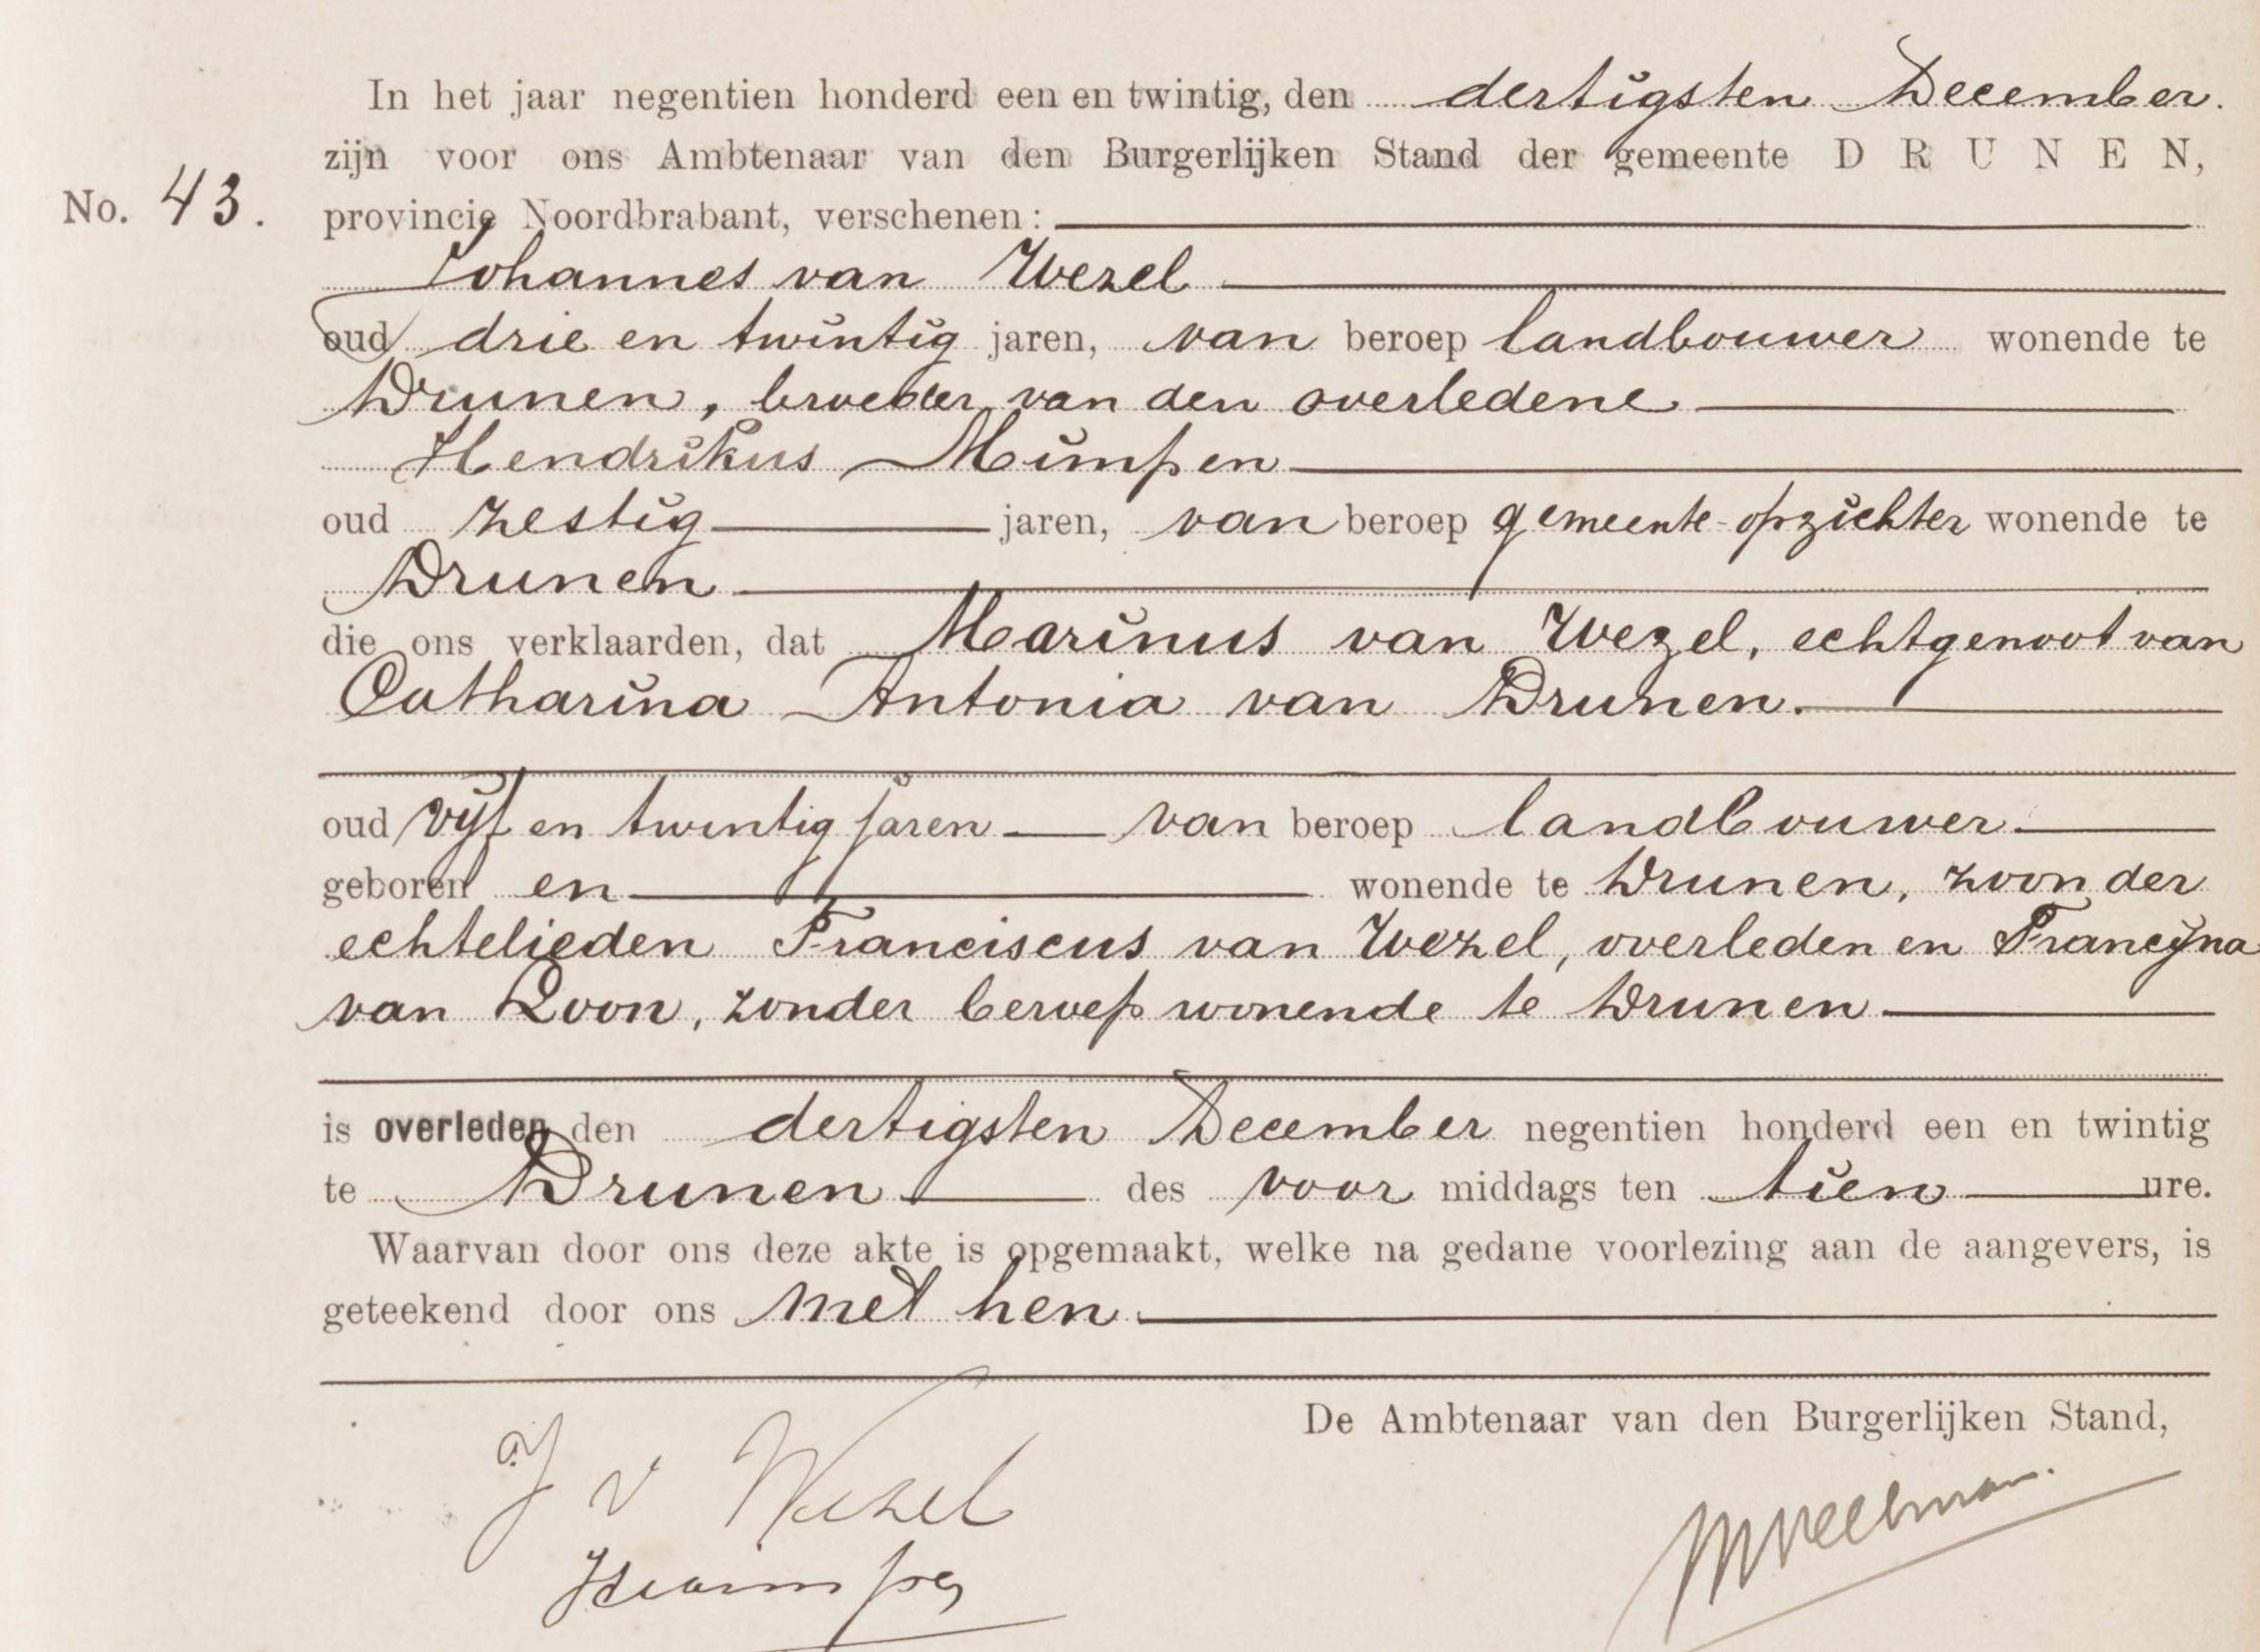 In het jaar negentien honderd een en twintig, den dertigsten December.
zijn voor ons Ambtenaar van den Burgerlijken Stand der gemeente D R U N E N,
No. 43. provincie Noordbrabant, verschenen:
Johannes van Wezel
oud drie en twintig jaren, van beroep landbouwer wonende te
Drunen, broeder van den overledene
Hendrikus Mimpen
oud zestig jaren, van beroep gemeente-opzichter wonende te
Drunen
die ons verklaarden, dat Marinus van Wezel, echtgenoot van
Catharina Antonia van Drunen.
oud vijf en twintig jaren van beroep landbouwer
geboren en wonende te Drunen, zoon der
echtelieden Franciscus van Wezel, overleden en Francijna
van Loon, zonder beroep wonende te Drunen
is overleden den dertigsten December negentien honderd een en twintig
te Drunen des voor middags ten tien ure.
Waarvan door ons deze akte is opgemaakt, welke na gedane voorlezing aan de aangevers, is
geteekend door ons met hen
De Ambtenaar van den Burgerlijken Stand,
J v Wezel